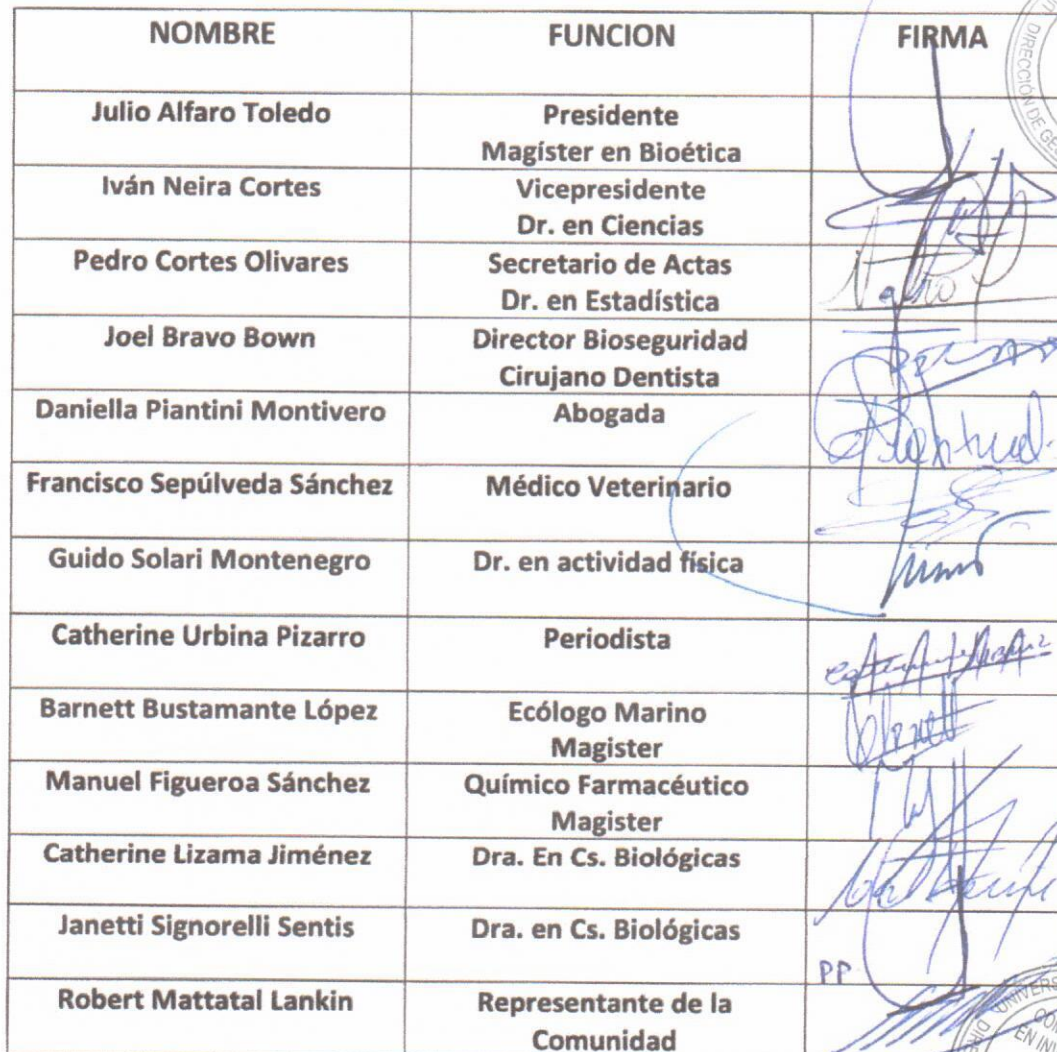 NOMBRE FUNCION FIRMA
DIRECCIÓN DE
Julio Alfaro Toledo Presidente
Magíster en Bioética
Iván Neira Cortes Vicepresidente
Dr. en Ciencias
Pedro Cortes Olivares Secretario de Actas
Dr. en Estadística
Joel Bravo Bown Director Bioseguridad
Cirujano Dentista
Daniella Piantini Montivero Abogada
Francisco Sepúlveda Sánchez Médico Veterinario
Guido Solari Montenegro Dr. en actividad física
Catherine Urbina Pizarro Periodista
Barnett Bustamante López Ecólogo Marino
Magister
Manuel Figueroa Sánchez Químico Farmacéutico
Magister
Catherine Lizama Jiménez Dra. En Cs. Biológicas
Janetti Signorelli Sentis Dra. en Cs. Biológicas
PP
Robert Mattatal Lankin Representante de la
Comunidad